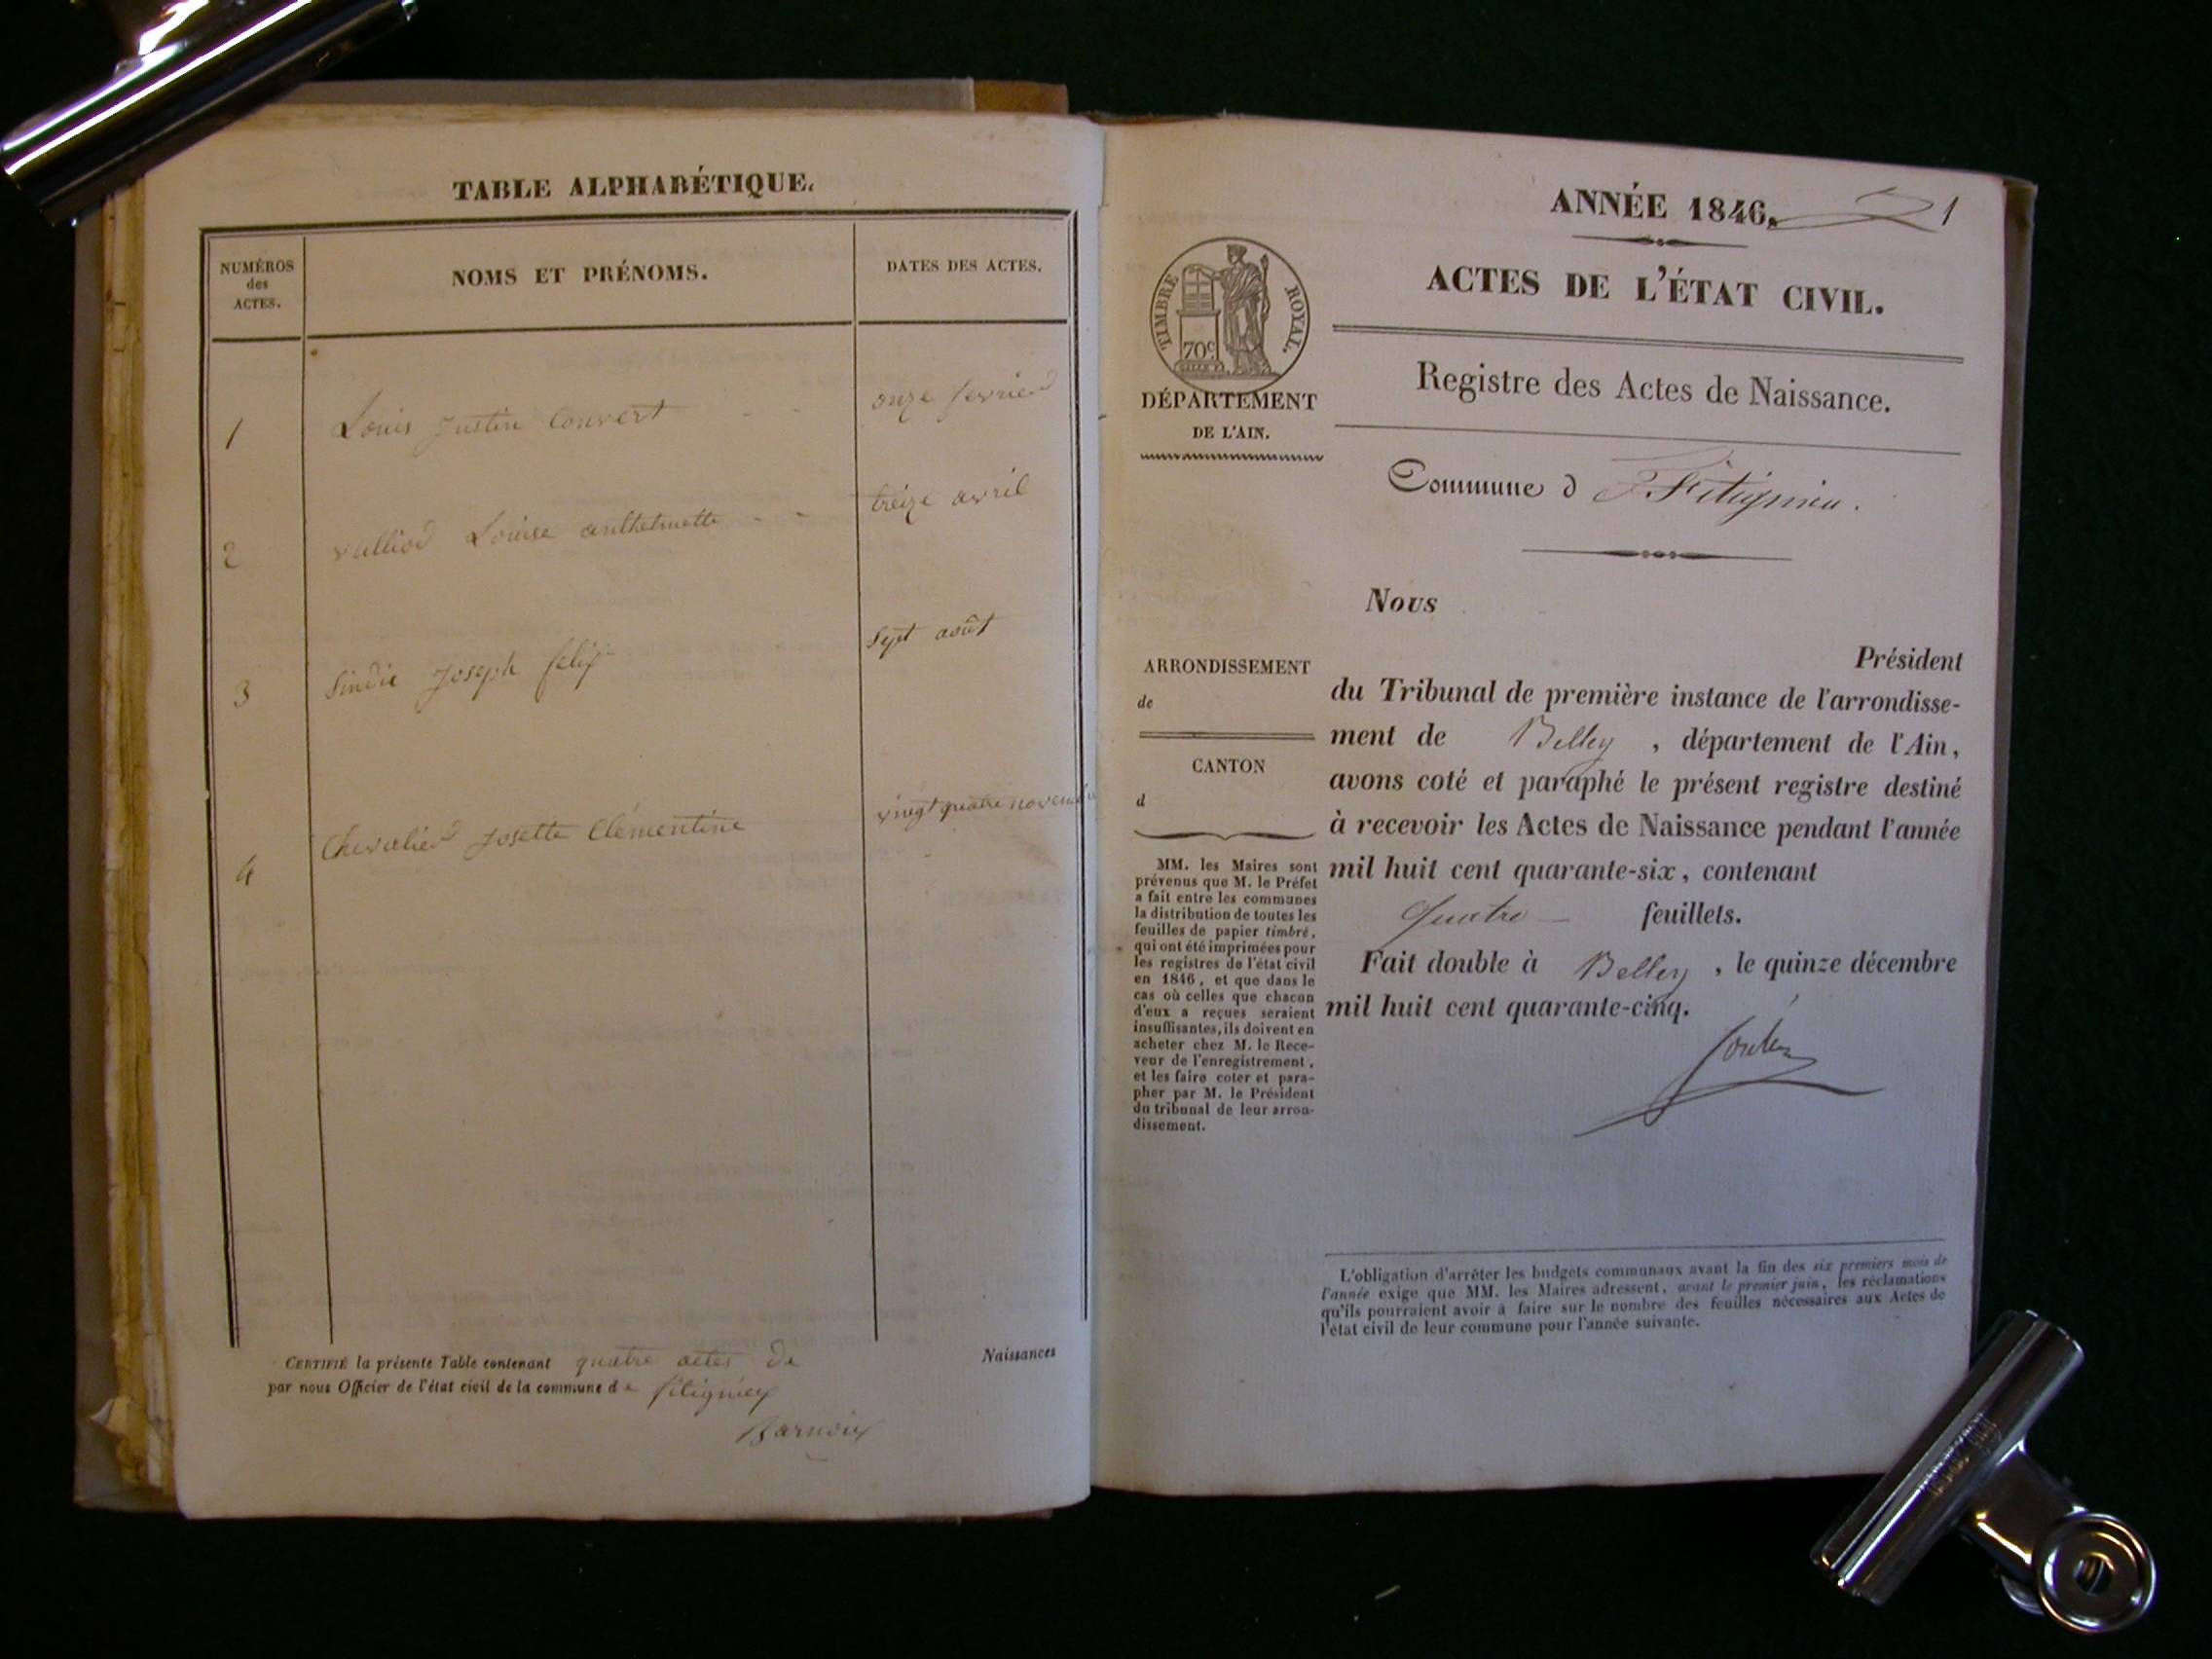 TABLE ALPHABÉTIQUE.
NUMÉROS
des
ACTES.
NOMS ET PRÉNOMS.
DATES DES ACTES.
1 Louis Justin Convert - - onze fevrier
2 valliod Louise anthelmette - - treize avril
3 Sindic Joseph felix sept août
4 Chevalier Josette Clémentine vingt quatre novembre
CERTIFIÉ la présente Table contenant quatre actes de Naissances
par nous Officier de l'état civil de la commune de fitignieu
ANNÉE 1846. 1
ACTES DE L'ÉTAT CIVIL.
TIMBRE ROYAL.
70c
DÉPARTEMENT
DE L'AIN.
Registre des Actes de Naissance.
Commune d Fitignieu.
Nous
Président
ARRONDISSEMENT
de
CANTON
d
du Tribunal de première instance de l'arrondisse-
ment de Belley, département de l'Ain,
avons coté et paraphé le présent registre destiné
à recevoir les Actes de Naissance pendant l'année
mil huit cent quarante-six, contenant
quatre feuillets.
Fait double à Belley, le quinze décembre
mil huit cent quarante-cinq.
MM. les Maires sont
prévenus que M. le Préfet
a fait entre les communes
la distribution de toutes les
feuilles de papier timbré,
qui ont été imprimées pour
les registres de l'état civil
en 1846, et que dans le
cas où celles que chacun
d'eux a reçues seraient
insuffisantes, ils doivent en
acheter chez M. le Rece-
veur de l'enregistrement,
et les faire coter et para-
pher par M. le Président
du tribunal de leur arron-
dissement.
L'obligation d'arrêter les budgets communaux avant la fin des six premiers mois de
l'année exige que MM. les Maires adressent, avant le premier juin, les réclamations
qu'ils pourraient avoir à faire sur le nombre des feuilles nécessaires aux Actes de
l'état civil de leur commune pour l'année suivante.